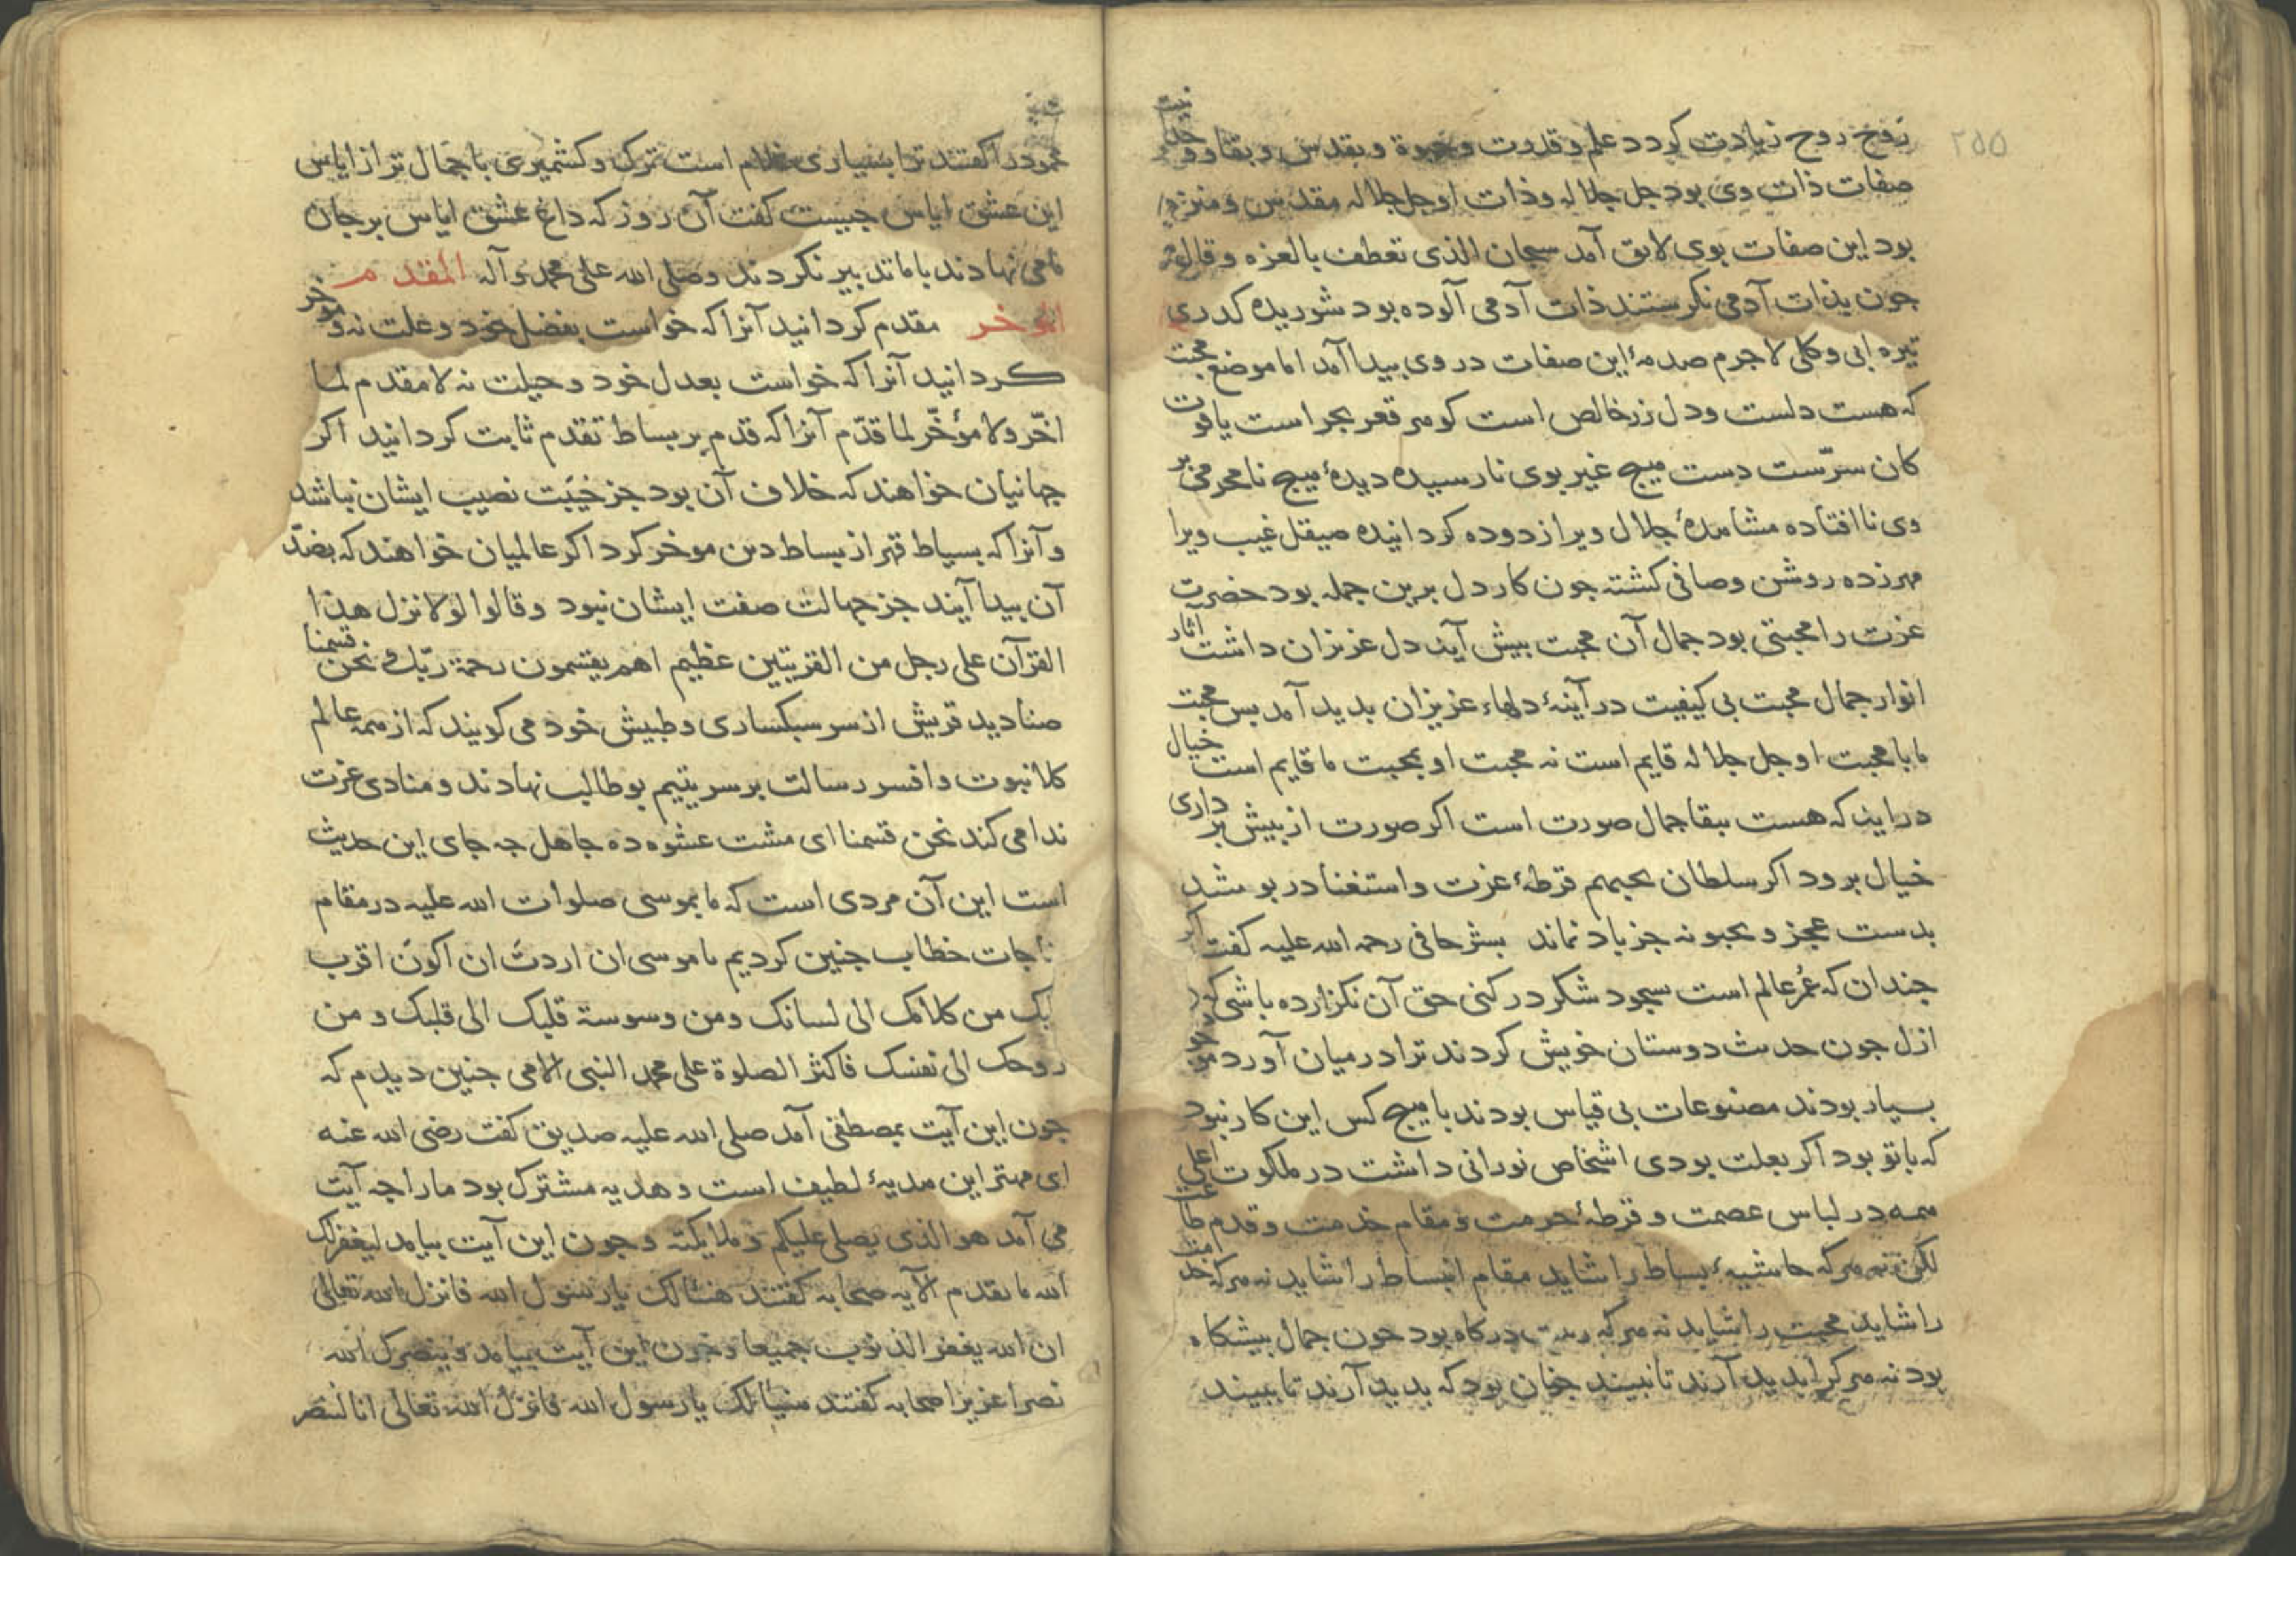 ۲۵۵
روح روح زیادت کردد علم وقدرت وحیوة وبقدس وبقا و وحدانیت
صفات ذات وی بود جل جلاله وذات او جل جلاله مقدس ومنزه
بود این صفات بوی لایق آمد سبحان الذی تعطف بالعزه وقال به
جون بذات آدمی نکرستند ذات آدمی آلوده بود شوریده کدری
تیره ابی وکلی لاجرم صدمهٔ این صفات در وی بیدا آمد اما موضع محبت
که هست دلست ودل زر خالص است کوهر قعر بحر است یاقوت
کان سرّست دست هیج غیر بوی نارسیده دیدهٔ هیج نامحرمی بر
وی نا افتاده مشاهدهٔ جلال ویرا زدوده کردانیده صیقل غیب ویرا
مهر زده روشن وصافی کشته جون کار دل برین جمله بود حضرت
عزت را محبتی بود جمال آن محبت بیش آینه دل عزیزان داشت آثار
انوار جمال محبت بی کیفیت در آینهٔ دلهاء عزیزان بدید آمد بس محبت
ما با محبت او جل جلاله قایم است نه محبت او بمحبت ما قایم است خیال
در اینه که هست ببقا جمال صورت است اکر صورت از بیش بر داری
خیال برود اکر سلطان یحبهم قرطهٔ عزت واستغنا در بوشد
بدست عجز ویحبونه جز باد نماند بشر حافی رحمه الله علیه کفت اکر
جندان که عُمر عالم است سجود شکر در کنی حق آن نکزارده باشی که در
ازل جون حدیث دوستان خویش کردند ترا در میان آورد
بسیار بودند مصنوعات بی قیاس بودند با هیج کس این کار نبود
که با تو بود اکر بعلت بودی اشخاص نورانی داشت در ملکوت اعلی
همه در لباس عصمت وقرطهٔ حرمت ومقام خدمت وقدم طاعت
لکن نه هر که حاشیهٔ بساط را شاید مقام انبساط را شاید نه هر که خدمت
را شاید محبت را شاید نه هر که درکاه بود جون جمال بیشکاه
بود نه هر کرا بدید آرند تا نبیند جنان بود که بدید آرند تا ببیند
محمود را کفتند ترا بسیاری غلام است ترک وکشمیری با جمال تر از ایاس
این عشق ایاس جیست کفت آن روز که داغ عشق ایاس بر جان
ما می نهادند با ما تدبیر نکردند وصلی الله علی محمد وآله المقدم
الموخر مقدم کردانید آنرا که خواست بفضل خود وعلت نه وموخر
کردانید آنرا که خواست بعدل خود وحیلت نه لا مقدم لما
اخّر ولا مؤخّر لما قدّم آنرا که قدم بر بساط تقدم ثابت کردانید اکر
جهانیان خواهند که خلاف آن بود جز خیبَت نصیب ایشان نباشد
وآنرا که بسیاط قهر از بساط دین موخر کرد اکر عالمیان خواهند که بضدّ
آن بیدا آیند جز جهالت صفت ایشان نبود وقالوا لولا نزل هذا
القرآن علی رجل من القریتین عظیم اهم یقسمون رحمة ربّک نحن قسمنا
صنادید قریش از سر سبکساری وطیش خود می کویند که از همه عالم
کلاه نبوت وافسر رسالت بر سر یتیم بو طالب نهادند ومنادی عزت
ندا می کند نحن قسمنا ای مشت عشوه ده جاهل جه جای این حدیث
است این آن مردی است که ما بموسی صلوات الله علیه در مقام
مناجات خطاب جنین کردیم یا موسی ان اردتَ ان اکونَ اقرب
الیک من کلامک الی لسانک ومن وسوسة قلبک الی قلبک ومن
روحک الی نفسک فاکثر الصلوة علی محمد النبی الامی جنین دیدم که
جون این آیت بمصطفی آمد صلی الله علیه صدیق کفت رضی الله عنه
ای مهتر این هدیهٔ لطیف است وهدیه مشترک بود ما را جه آیت
می آمد هو الذی یصلی علیکم وملایکته وجون این آیت بیامد لیغفر لک
الله ما تقدم الآیه صحابه کفتند هنیئالک یا رسول الله فانزل الله تعالی
ان الله یغفر الذنوب جمیعا وجون این آیت بیامد وینصرک الله
نصرا عزیزا صحابه کفتند هنیئالک یا رسول الله فانزل الله تعالی انا لننصر